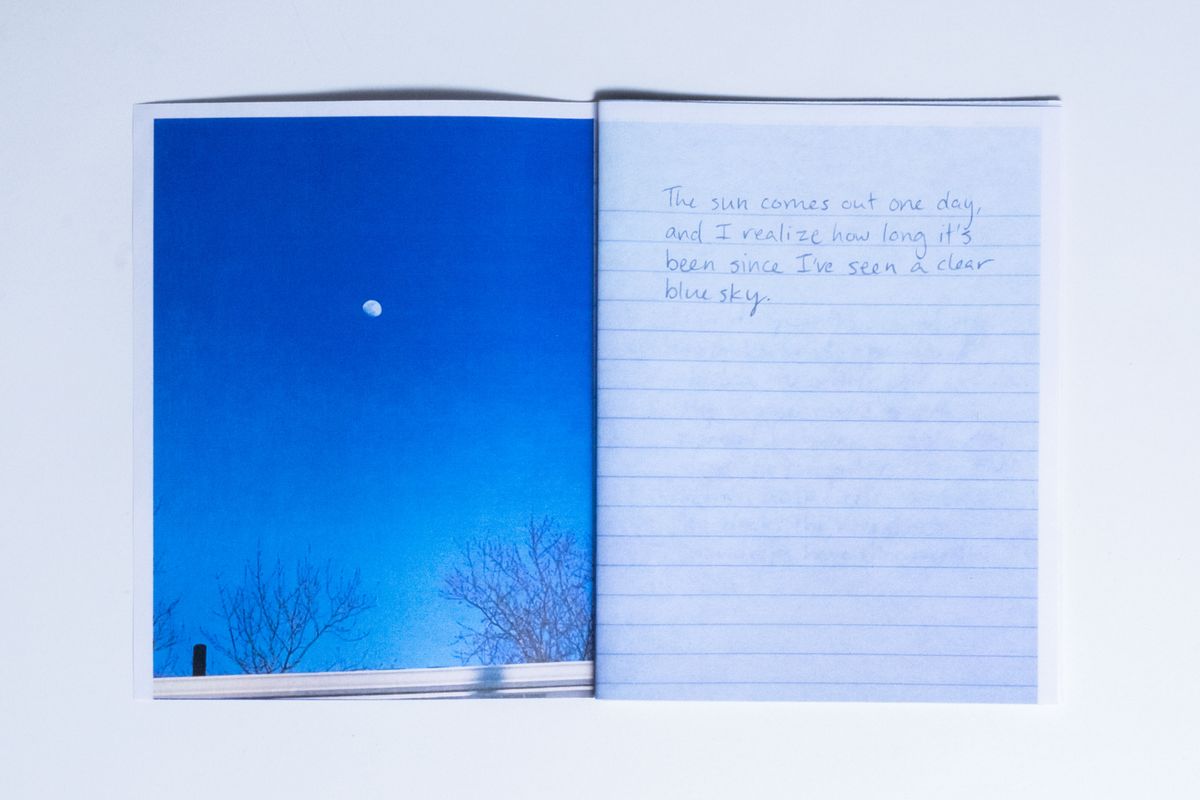 The sun comes out one day,
and I realize how long it's
been since I've seen a clear
blue sky.